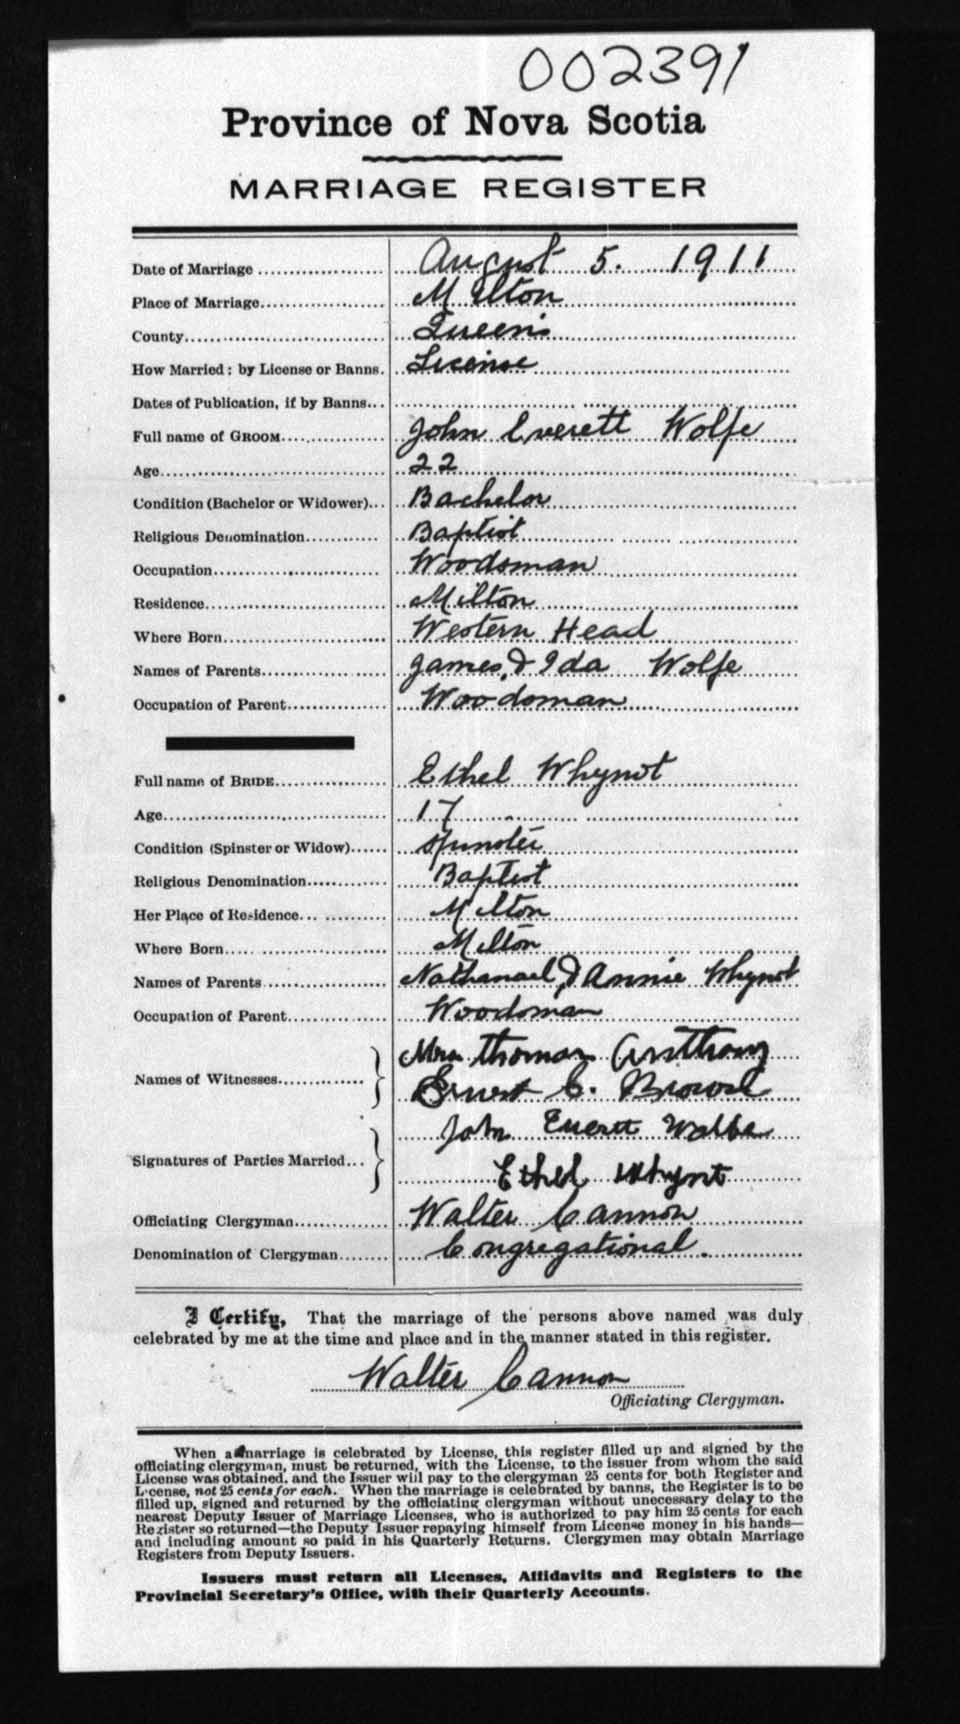 002391
Province of Nova Scotia
MARRIAGE REGISTER
Date of Marriage August 5. 1911
Place of Marriage Milton
County Queens
How Married: by License or Banns. License
Dates of Publication, if by Banns
Full name of GROOM John Everett Wolfe
Age 22
Condition (Bachelor or Widower) Bachelor
Religious Denomination Baptist
Occupation Woodsman
Residence Milton
Where Born Western Head
Names of Parents James & Ida Wolfe
Occupation of Parent Woodsman
Full name of BRIDE Ethel Whynot
Age 17
Condition (Spinster or Widow) Spinster
Religious Denomination Baptist
Her Place of Residence Milton
Where Born Milton
Names of Parents Nathanael & Annie Whynot
Occupation of Parent Woodsman
Mrs Thomas
Names of Witnesses
Ernest C.
John Everett
Signatures of Parties Married
Ethel Whynt
Officiating Clergyman Walter Cannon
Denomination of Clergyman Congregational.
I Certify, That the marriage of the persons above named was duly
celebrated by me at the time and place and in the manner stated in this register.
Walter Cannon
Officiating Clergyman.
When a marriage is celebrated by License, this register filled up and signed by the
officiating clergyman, must be returned, with the License, to the issuer from whom the said
License was obtained, and the Issuer will pay to the clergyman 25 cents for both Register and
License, not 25 cents for each. When the marriage is celebrated by banns, the Register is to be
filled up, signed and returned by the officiating clergyman without unecessary delay to the
nearest Deputy Issuer of Marriage Licenses, who is authorized to pay him 25 cents for each
Register so returned—the Deputy Issuer repaying himself from License money in his hands—
and including amount so paid in his Quarterly Returns. Clergymen may obtain Marriage
Registers from Deputy Issuers.
Issuers must return all Licenses, Affidavits and Registers to the
Provincial Secretary's Office, with their Quarterly Accounts.